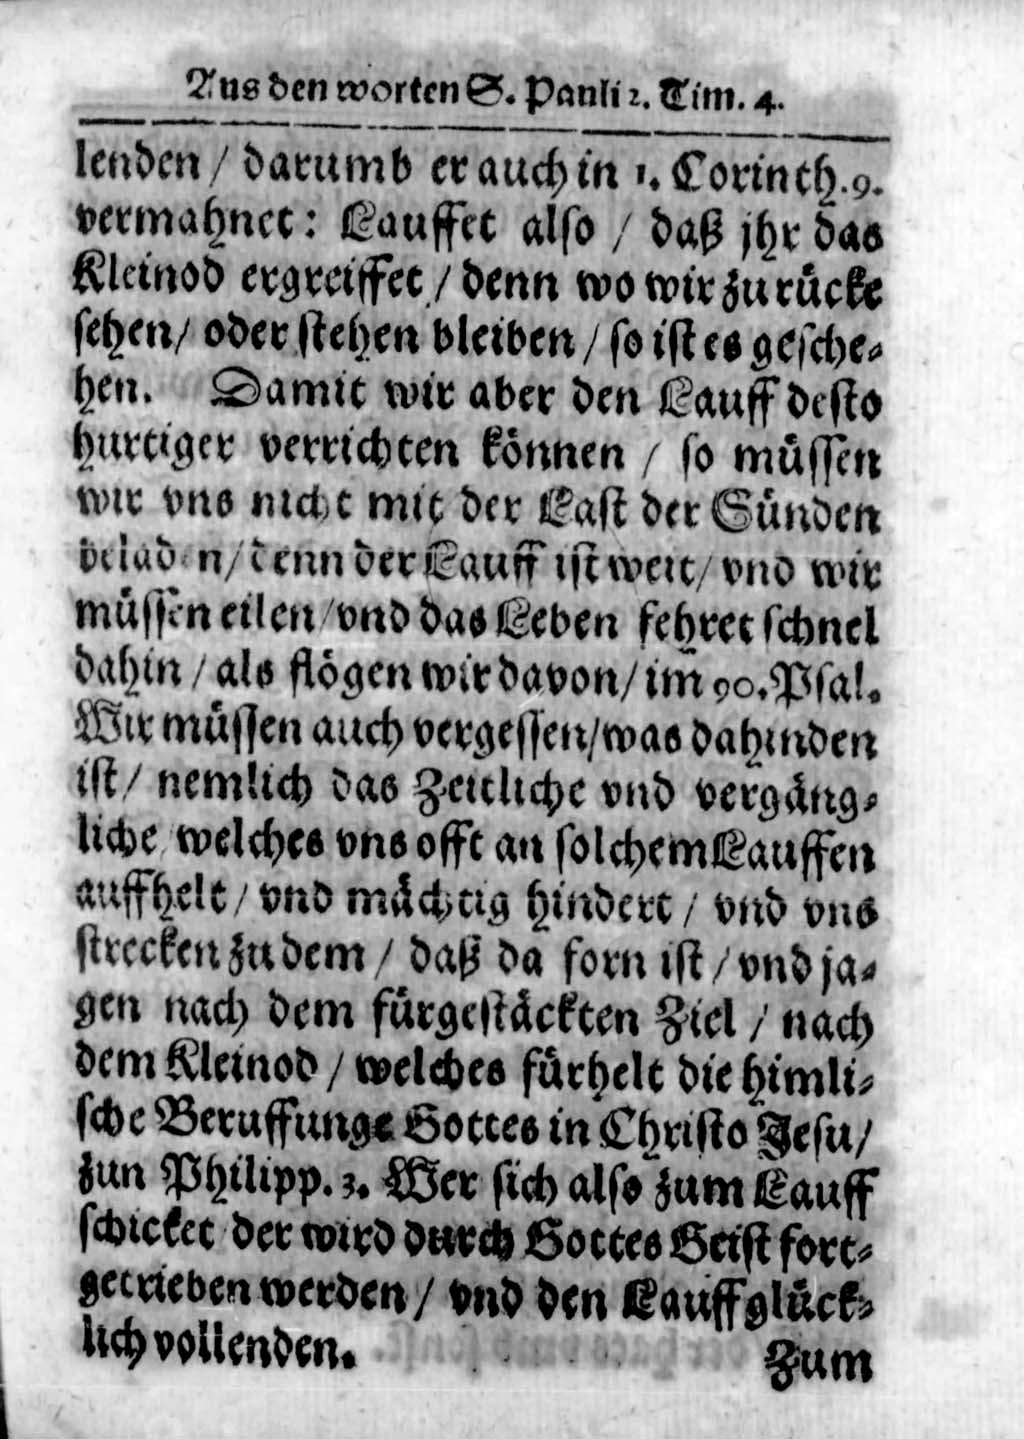 Aus den worten S. Pauli 2. Tim. 4.
lenden / darumb er auch in 1. Corinth. 9.
vermahnet: Lauffet also / daß jhr das
Kleinod ergreiffet / denn wo wir zu rücke
sehen / oder stehen bleiben / so ist es gesche-
hen. Damit wir aber den Lauff desto
hurtiger verrichten können / so müssen
wir vns nicht mit der Last der Sünden
beladen / denn der Lauff ist weit / vnd wir
müssen eilen / vnd das Leben fehret schnel
dahin / als flögen wir davon / im 90. Psal.
Wir müssen auch vergessen / was dahinden
ist / nemlich das Zeitliche vnd vergäng-
liche / welches vns offt an solchem Lauffen
auffhelt / vnd mächtig hindert / vnd vns
strecken zu dem / daß da forn ist / vnd ja-
gen nach dem fürgestäckten Ziel / nach
dem Kleinod / welches fürhelt die himli-
sche Beruffunge Gottes in Christo Jesu /
zun Philipp. 3. Wer sich also zum Lauff
schicket der wird durch Gottes Geist fort-
getrieben werden / vnd den Lauff glück-
lich vollenden.
Zum